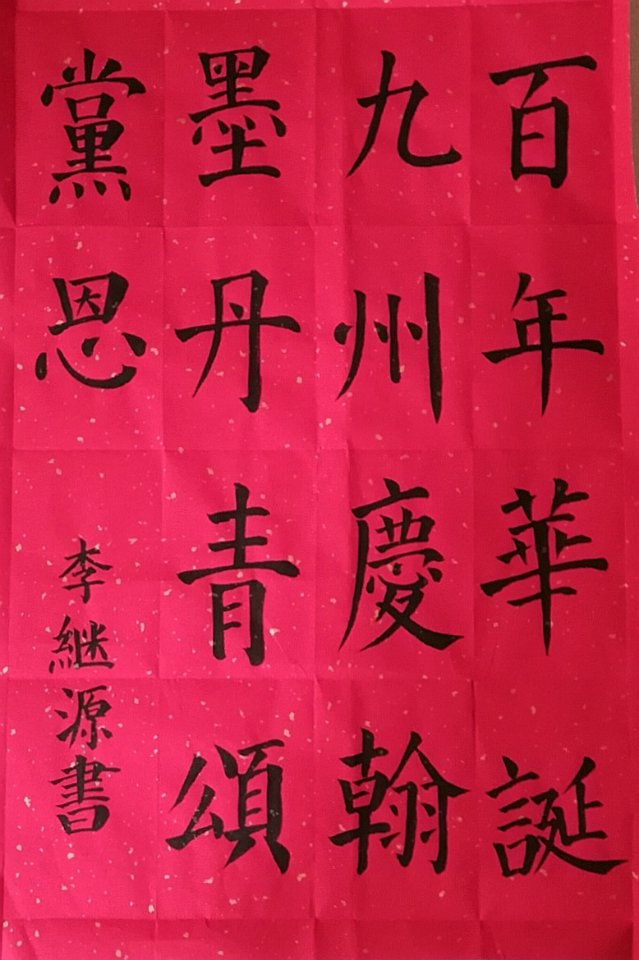 百年華誕
九州慶翰
墨丹青頌
黨恩
李継源書